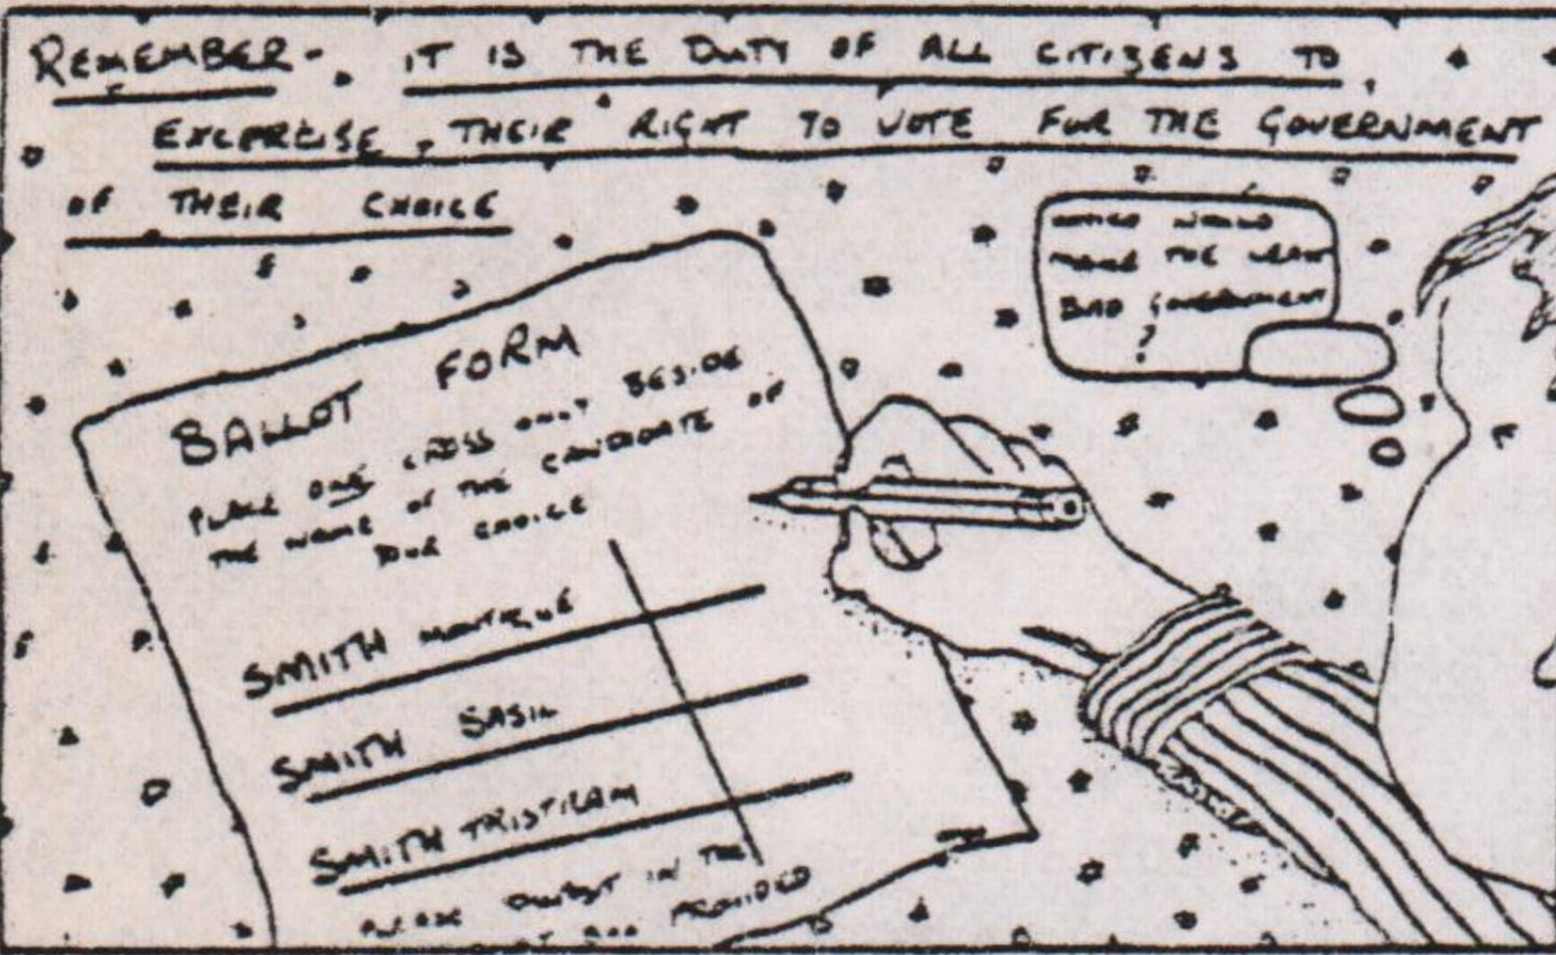 REMEMBER - IT IS THE DUTY OF ALL CITIZENS TO
EXCERCISE, THEIR RIGHT TO VOTE FOR THE GOVERNMENT
OF THEIR CHOICE
WHICH WOULD
MAKE THE LEAST
BAD GOVERNMENT
?
BALLOT FORM
PLACE ONE CROSS ONLY BESIDE
THE NAME OF THE CANDIDATE OF
YOUR CHOICE
SMITH MONTAGUE
SMITH BASIL
SMITH TRISTRAM
PLEASE IN THE
BOX PROVIDED